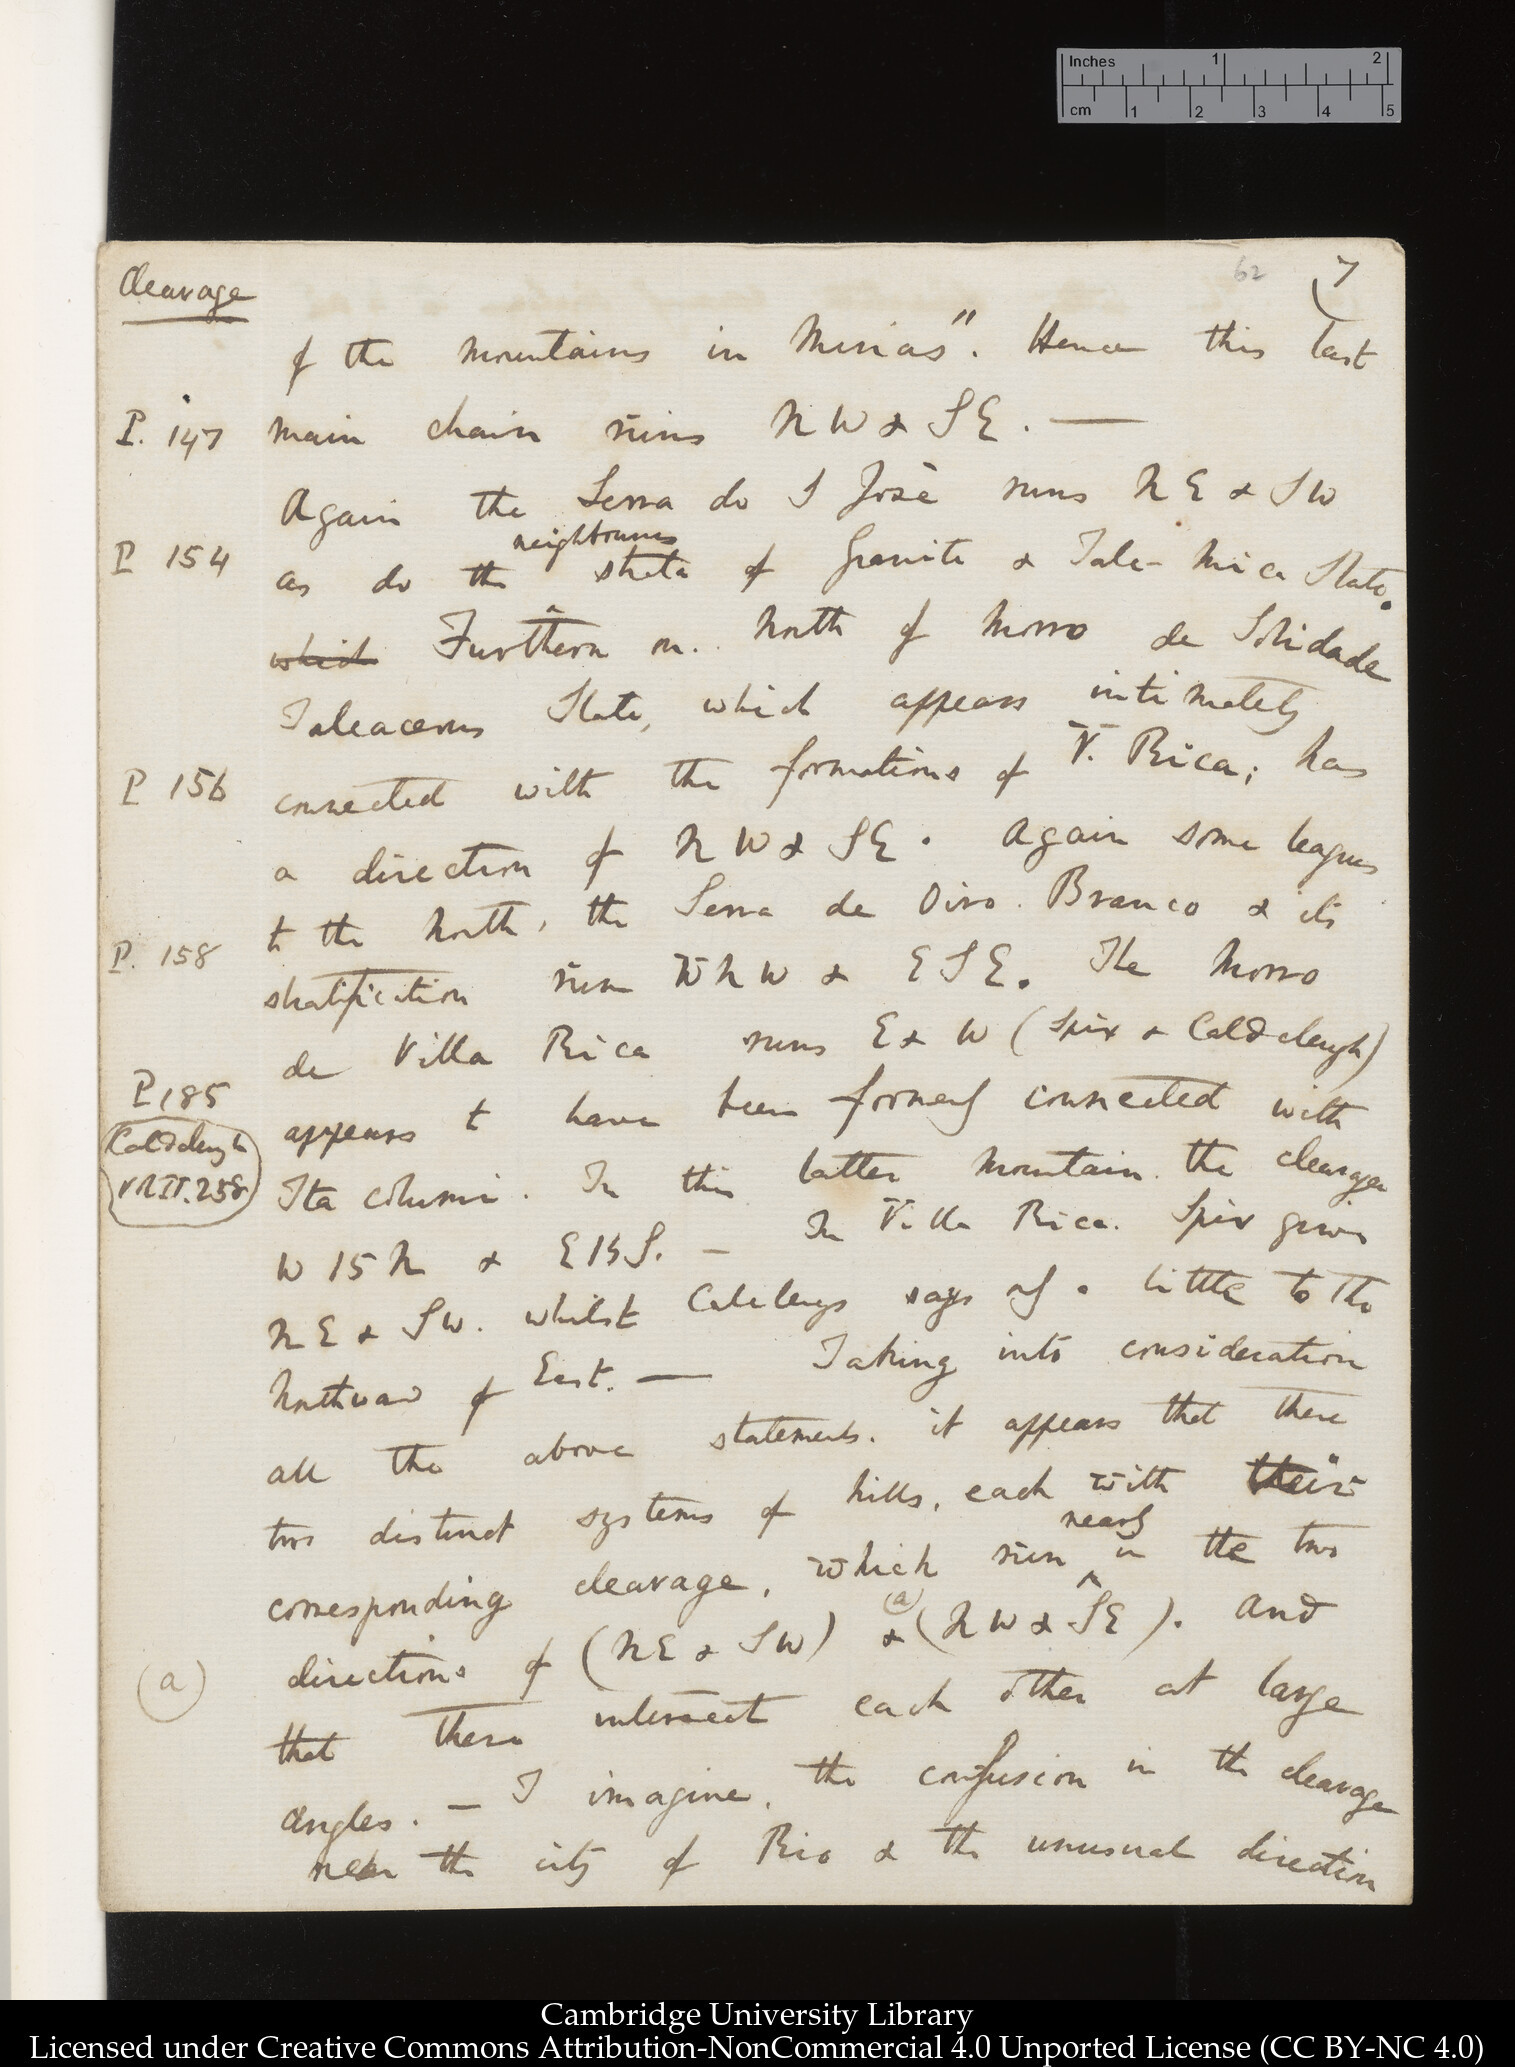 Inches 1 2
cm 1 2 3 4 5
Cleavage
62 7
of the mountains in Minias". Hence this last
P. 147 main chain runs NW & SE. —
Again the Serra do S José runs NE & SW
neighbouring
P 154 as do the strata of Granite & Talc-Mica Slate.
which Further on. North of Morro de Solidade
Talcaceous Slate, which appears intimately
P 156 connected with the formations of V. Rica; has
a direction of NW & SE. Again some leagues
to the North, the Serra de Oiro Branco & its
P. 158 stratification run WNW & ESE. The Morro
de Villa Rica runs E & W (Spix & Caldcleugh)
P 185 appears to have been formerly connected with
Caldcleugh
Vol II. 258
Ita columi. In this latter mountain the cleavage
W 15 N & E 15 S. — In Villa Rica. Spix gives
NE & SW. whilst Caldcleugh says only a little to the
Northward of East. — Taking into consideration
all the above statements. it appears that there
two distinct systems of hills, each with their
nearly
corresponding cleavage, which run in the two
(a)
directions of (NE & SW) & (NW & SE). and
(a)
that these intersect each other at large
angles. — I imagine, the confusion in the cleavage
near the city of Rio & the unusual direction
Cambridge University Library
Licensed under Creative Commons Attribution-NonCommercial 4.0 Unported License (CC BY-NC 4.0)